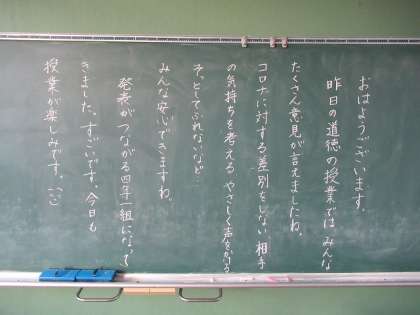 おはようございます。
昨日の道徳の授業では みんな
たくさん意見が言えましたね。
コロナに対する差別をしない 相手
の気持ちを考える やさしく声をかける
そっとしてふれないなど…
みんな安心できますね。
発表がつながる四年一組になって
きました。すごいです。今日も
授業が楽しみです。